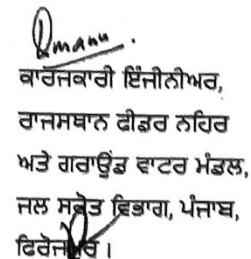 ਕਾਰਜਕਾਰੀ ਇੰਜੀਨੀਅਰ,
ਰਾਜਸਥਾਨ ਫੀਡਰ ਨਹਿਰ
ਅਤੇ ਗਰਾਊਂਡ ਵਾਟਰ ਮੰਡਲ,
ਜਲ ਸਰੋਤ ਵਿਭਾਗ, ਪੰਜਾਬ,
ਫਿਰੋਜਪੁਰ।